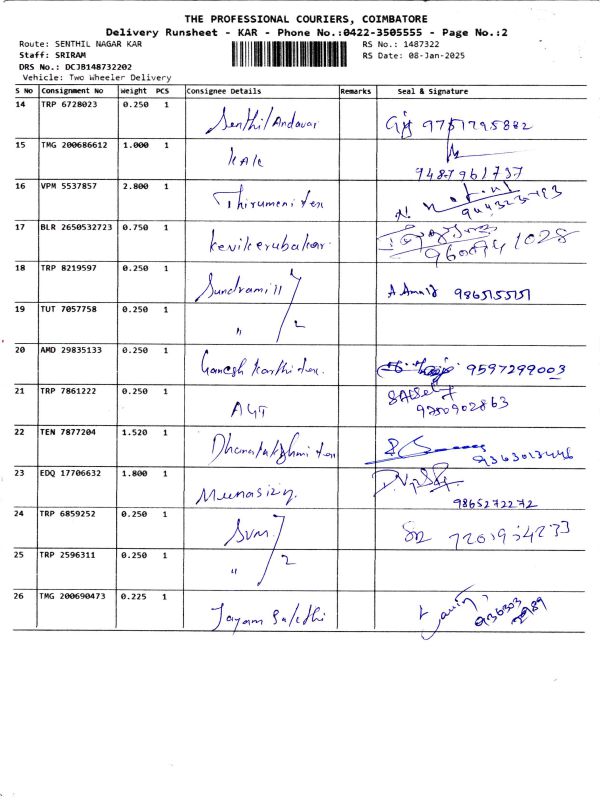 THE PROFESSIONAL COURIERS, COIMBATORE
Delivery Runsheet - KAR - Phone No.:0422-3505555 - Page No.:2
Route: SENTHIL NAGAR KAR RS No.: 1487322
Staff: SRIRAM RS Date: 08-Jan-2025
DRS No.: DCJB148732202
Vehicle: Two Wheeler Delivery
S No Consignment No Weight PCS Consignee Details Remarks Seal & Signature
14 TRP 6728023 0.250 1 Senthil Andavar 9751795882
15 TMG 200686612 1.000 1 KAK
9487961737
16 VPM 5537857 2.800 1 Thirumeni tex
17 BLR 2650532723 0.750 1 kevikerubakar
18 TRP 8219597 0.250 1 Sundram
19 TUT 7057758 0.250 1 " 2
20 AMD 29835133 0.250 1 Ganesh Karthi tex. 9597299003
21 TRP 7861222 0.250 1 AGT
9750902863
22 TEN 7877204 1.520 1 Dhanalakshmi tex
23 EDQ 17706632 1.800 1 Munasizy.
9865272272
24 TRP 6859252 0.250 1 SVM
25 TRP 2596311 0.250 1 " 2
26 TMG 200690473 0.225 1 Jayam